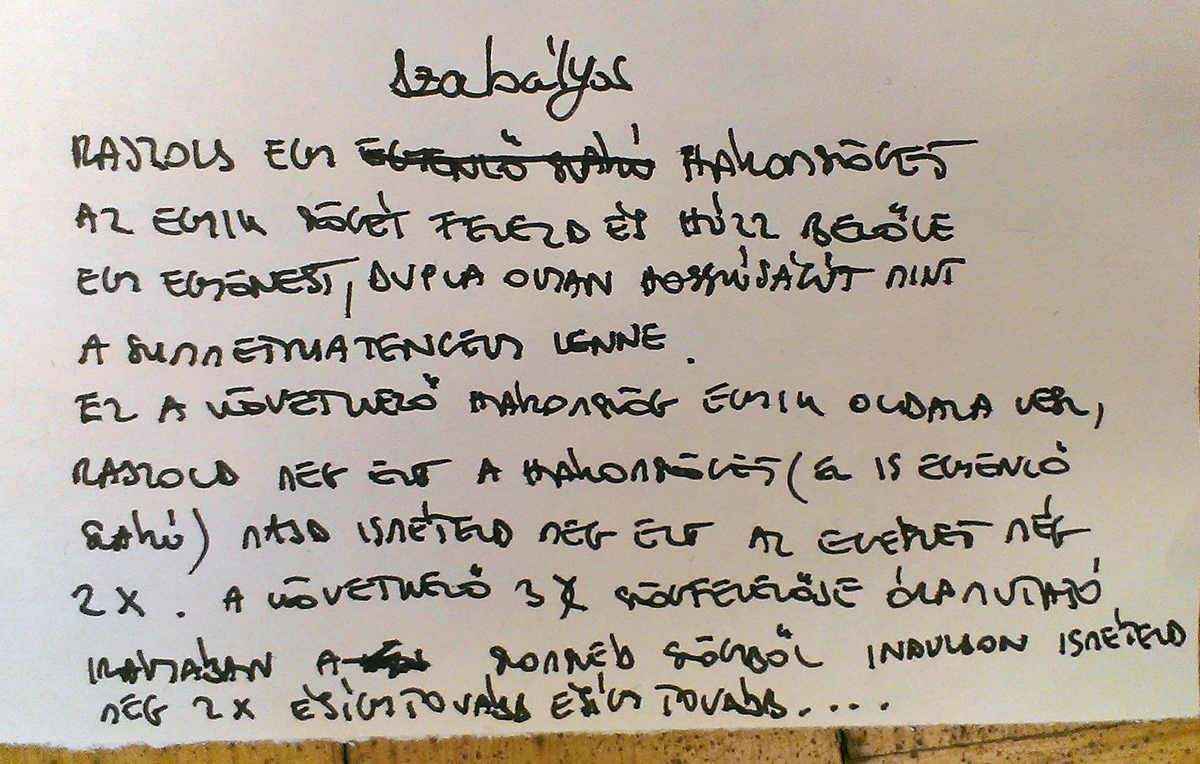 Szabályos
RAJZOLJ EGY HÁROMSZÖGET
AZ EGYIK SZÖGÉT FELEZD ÉS HÚZZ BELŐLE
EGY EGYENEST, DUPLA OLYAN HOSSZÚSÁGÚT MINT
A SZIMMETRIATENGELY LENNE.
EZ A KÖVETKEZŐ HÁROMSZÖG EGYIK OLDALA LESZ,
RAJZOLD MEG EZT A HÁROMSZÖGET (EZ IS EGYENLŐ
SZÁRÚ) MAJD ISMÉTELD MEG EZT AZ ELVET MÉG
2X. A KÖVETKEZŐ 3 SZÖGFELEZŐJE ÓRAMUTATÓ
IRÁNYÁBAN A SZOMSZÉD SZÖGBŐL INDULJON ISMÉTELD
MEG 2X ÉSÍGYTOVÁBB ÉSÍGY TOVÁBB....